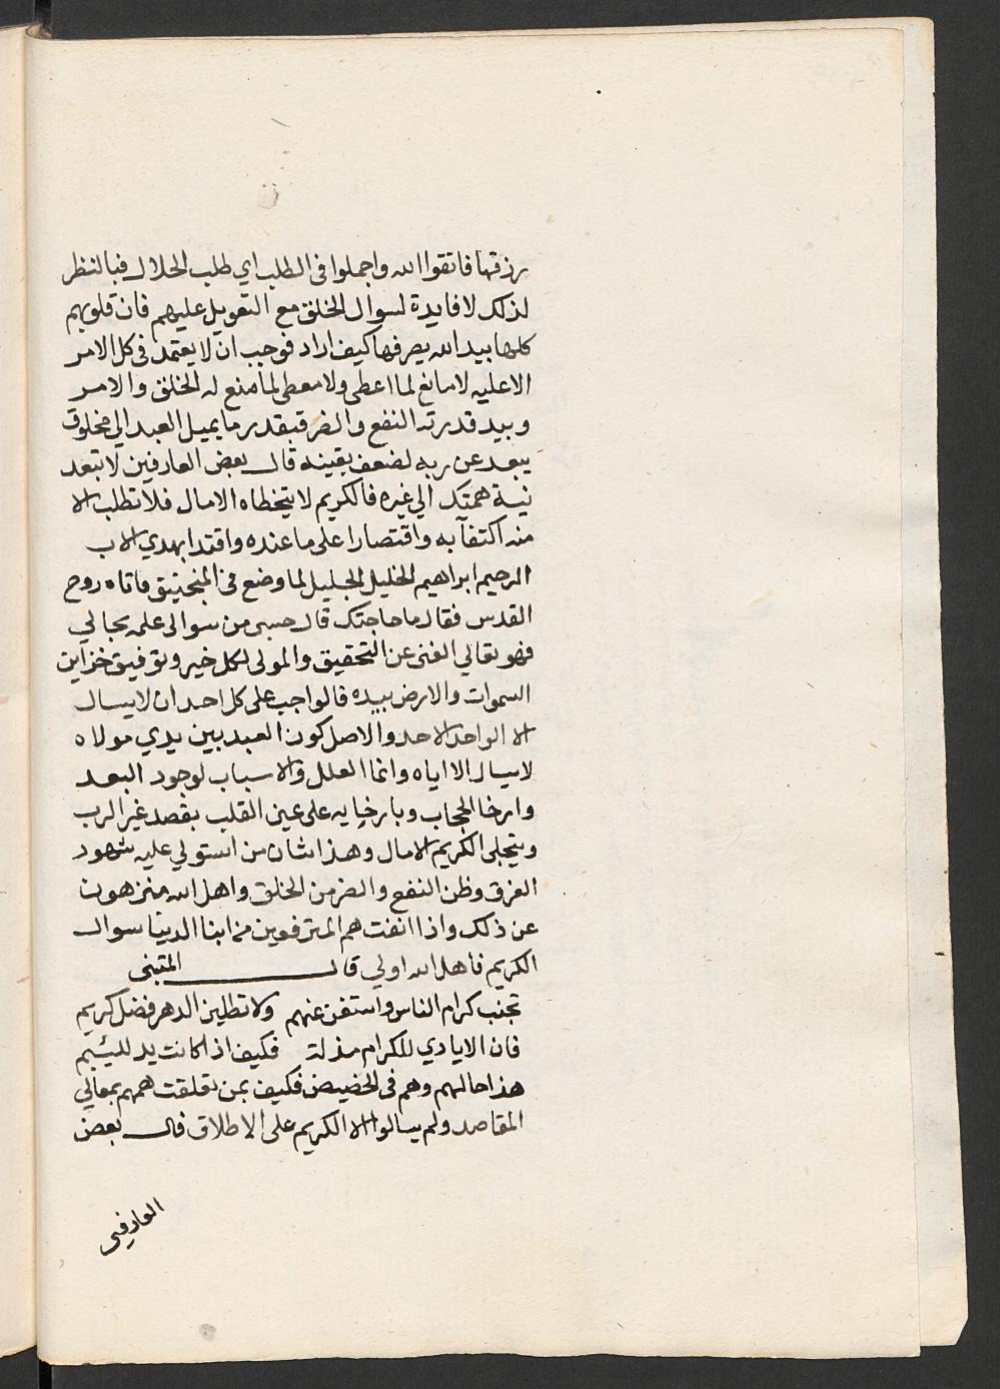 رزقها فاتقوا الله واجملوا في الطلب اي طلب الحلال فبالنظر
لذلك لا فايدة لسوال الخلق مع التعويل عليهم فان قلوبهم
كلها بيد الله يصرفها كيف اراد فوجب ان لا يعتمد في كل الامر
الا عليه لا مانع لما اعطى ولا معطي لما منع له الخلق والامر
وبيد قدرته النفع والضر فبقدر ما يميل العبد الي مخلوق
يبعد عن ربه لضعف يقينه قال بعض العارفين لا تبعد
نية همتك الي غيره فالكريم لا يتخطاه الامال فلا تطلب الا
منه اكتفآ به واقتصارا على ما عنده واقتدا بهدي الاب
الرحيم ابراهيم الخليل الجليل لما وضع في المنجنيق فاتاه روح
القدس فقال ما حاجتك قال حسبي من سوالي علمه بحالي
فهو تعالي الغني عن التحقيق والمولى لكل خير وتوفيق خزاين
السموات والارض بيده فالواجب على كل احد ان لا يسال
الا الواحد الاحد والاصل كون العبد بين يدي مولاه
لا يسال الا اياه وانما العلل والاسباب لوجود البعد
وارخا الحجاب وبارخايه على عين القلب يقصد غير الرب
ويتجلى الكريم الامال وهذا شان من استولي عليه شهود
الفرق وظن النفع والضر من الخلق واهل الله منزهون
عن ذلك واذا انفت همم المترفهين من ابنا الدنيا سوال
الكريم فاهل الله اولي قال المتنبى
تجنب كرام الناس واستغن عنهم ولا تطلبن الدهر فضل كريم
فان الايادي للكرام مذلة فكيف اذا كانت يد للئيم
هذا حالهم وهم في الحضيض فكيف بمن تعلقت هممهم بمعالي
المقاصد ولم يسالوا الا الكريم على الاطلاق قال بعض
العارفين